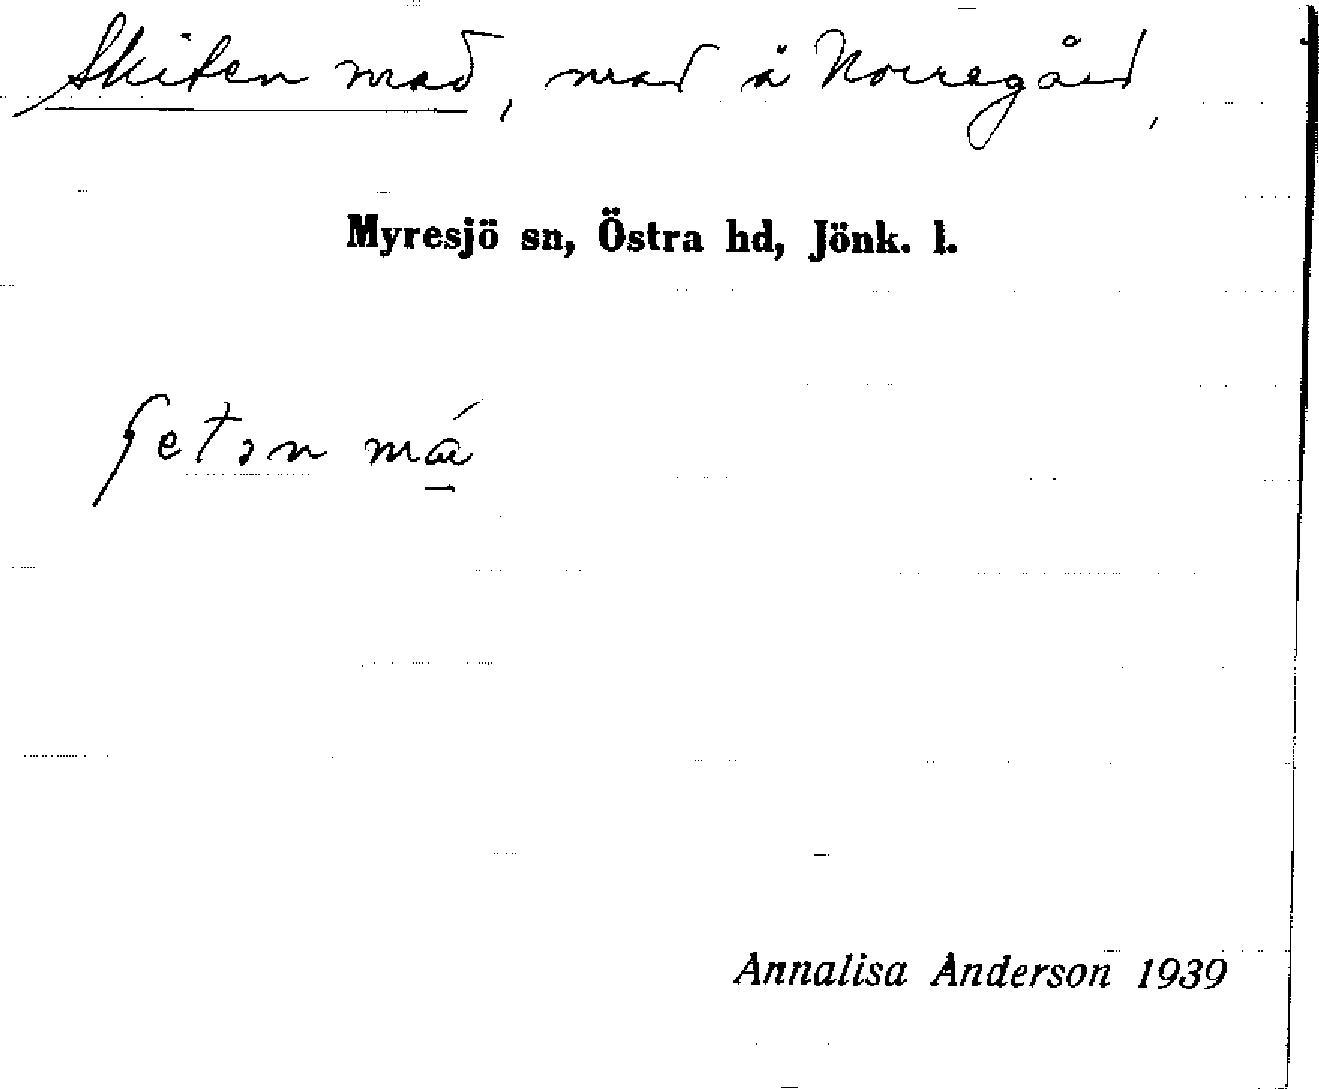 Skiten mad, mad å Norregård,
Myresjö sn, Östra hd, Jönk. l.
ʃetən má
Annalisa Anderson 1939